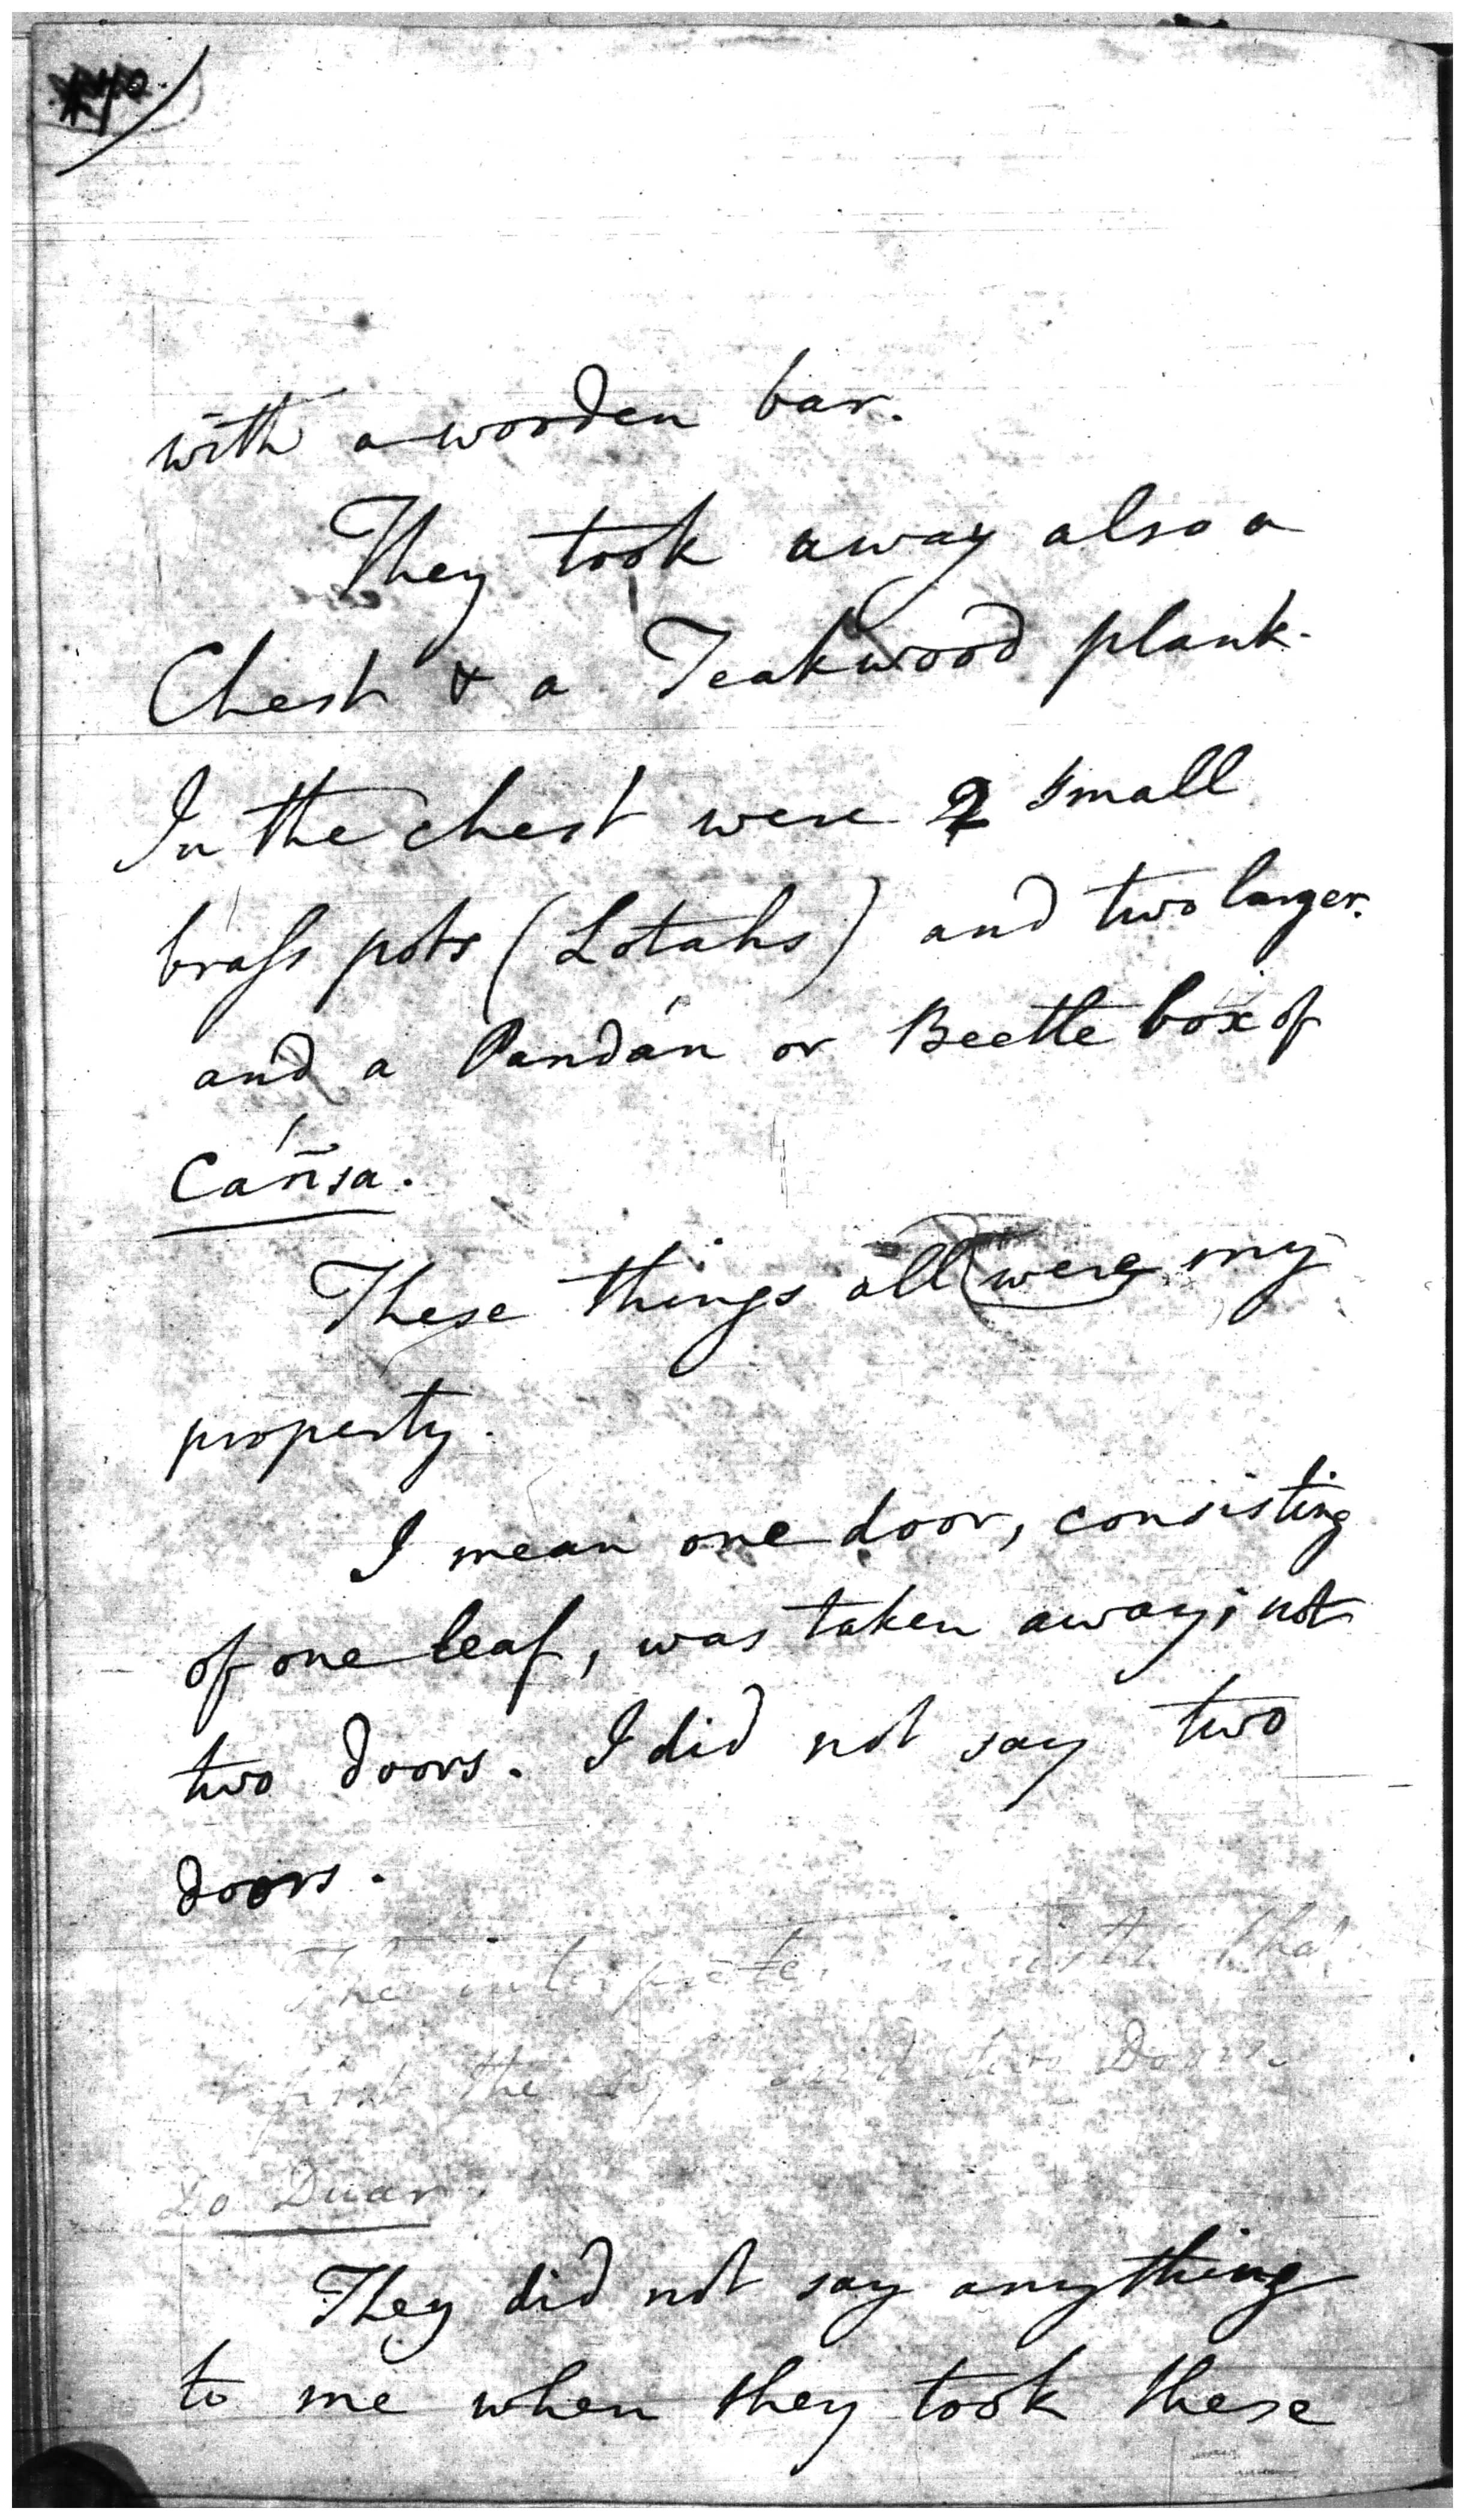 with a wooden bar.
They took away also a
Chest & a Teakwood plank.
In the chest were 2 small
brass pots (Lotahs) and two larger.
and a Pandán or Beetle box of
Cáñsa.
These things all were my
property.
I mean one door, consisting
of one leaf, was taken away; not
two doors. I did not say two
doors.
The interpreter insists that
first the said two Doors.
Do Duar
They did not say anything
to me when they took these